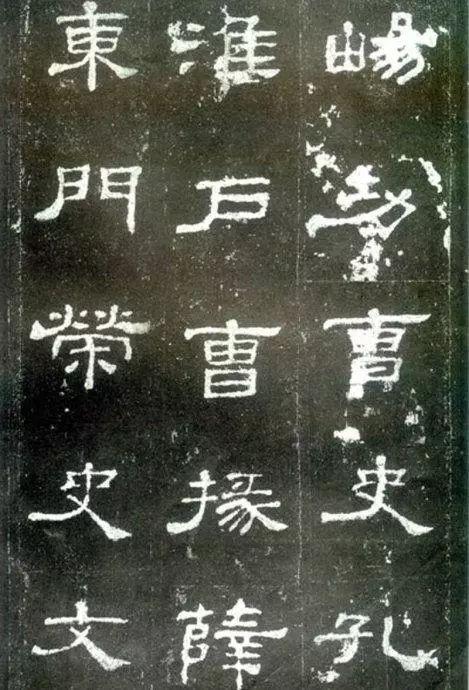 暘功曹史孔
淮戶曹掾薛
東門榮史文